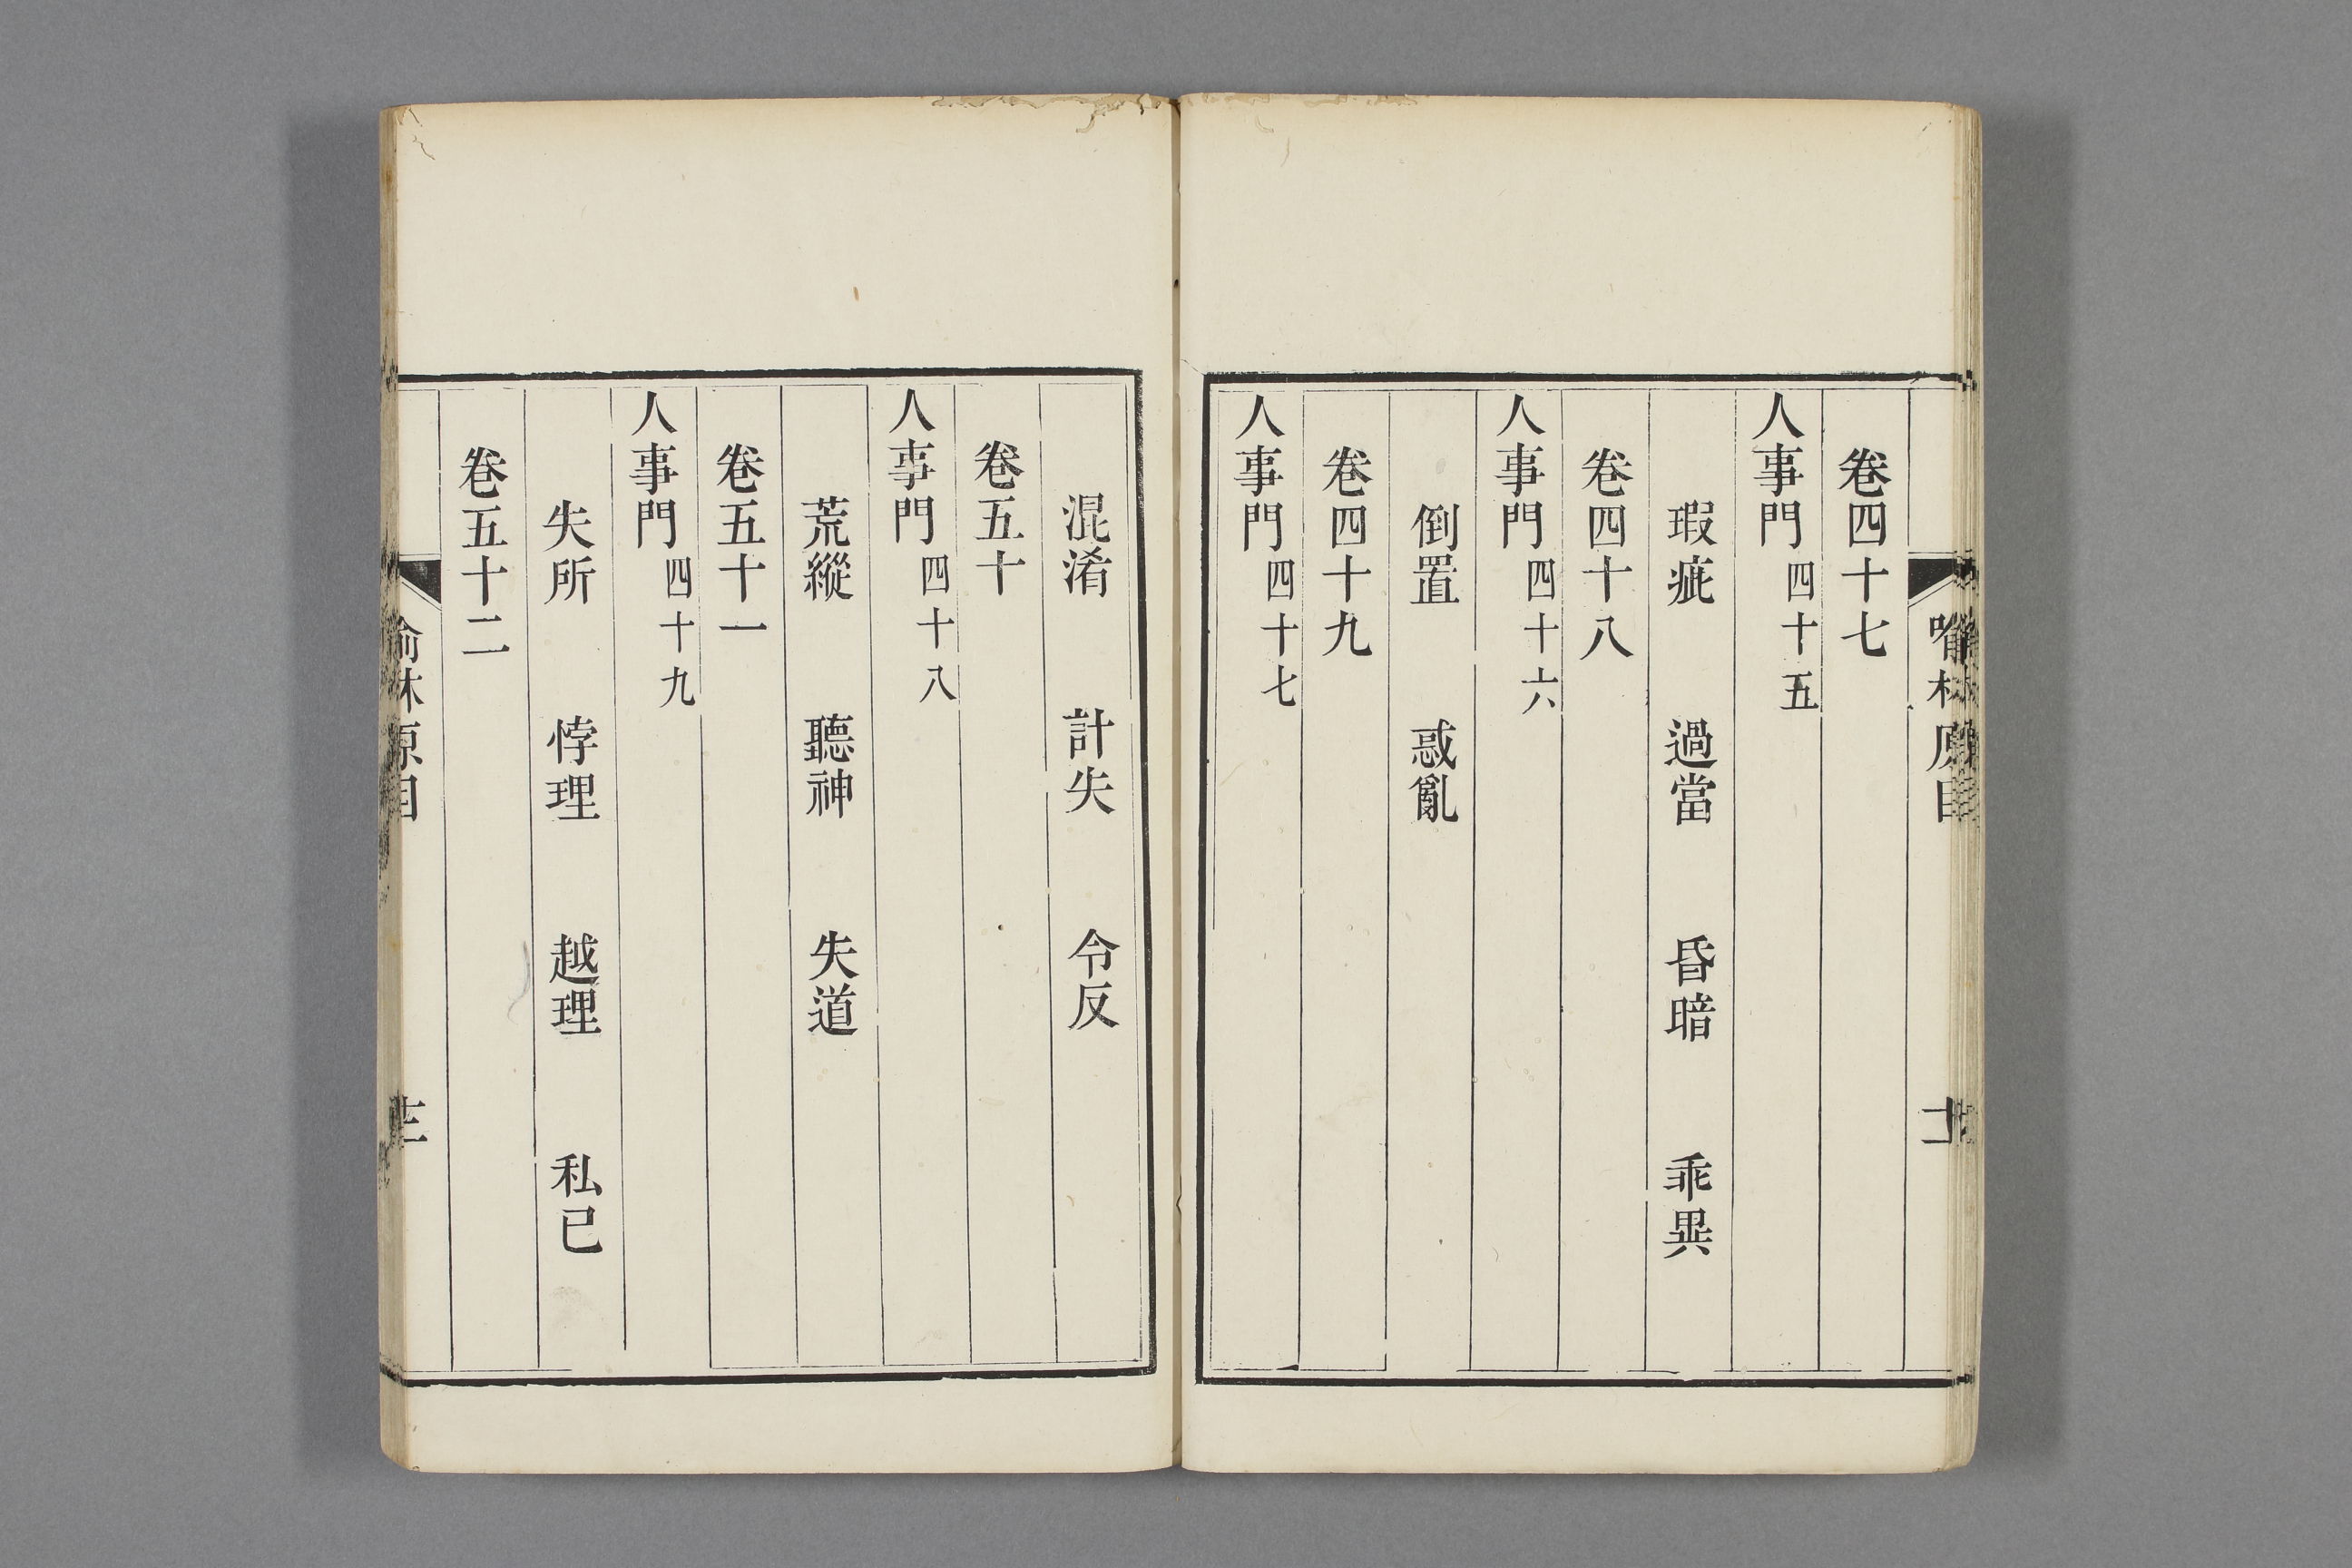 卷四十七
人事門四十五
瑕疵　過當　昏暗　乖異
卷四十八
人事門四十六
倒置　惑亂
卷四十九
人事門四十七
混淆　計失　令反
卷五十
人事門四十八
荒縱　聽神　失道
卷五十一
人事門四十九
失所　悖理　越理　私已
卷五十二
喻林原目